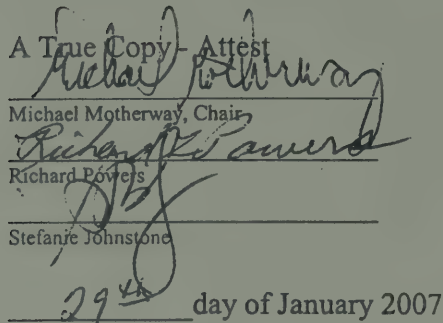 A True Copy - Attest
Michael Motherway
Michael Motherway, Chair
Richard Powers
Richard Powers
Stefanie Johnstone
29th day of January 2007